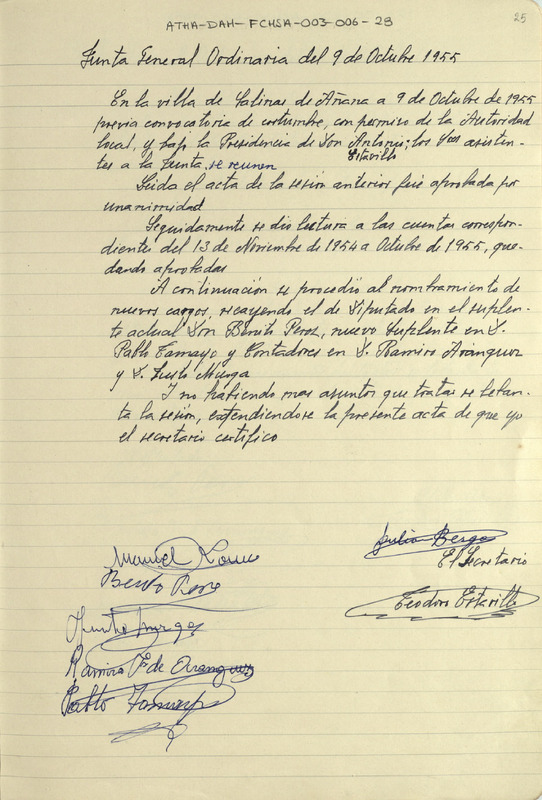 ATHA-DAH-FCHSA-003-006-28
25
Junta General Ordinaria del 9 de Octubre 1955
En la villa de Salinas de Añana a 9 de Octubre de 1955
previa convocatoria de costumbre, con permiso de la Autoridad
local, y bajo la Presidencia de Don Antonio; los Sres asisten-
Estavillo
tes a la Junta, se reunen
Leida el acta de la sesión anterior fué aprobada por
unanimidad
Seguidamente se dio lectura a las cuentas correspon-
dientes del 13 de Noviembre de 1954 a Octubre de 1955, que-
dando aprobadas
A continuación se procedió al nombramiento de
nuevos cargos, recayendo el de Diputado en el suplen-
te actual Don Benito Perez, nuevo Suplente en D.
Pablo Tamayo y Contadores en D. Ramiro Aranguiz
y D. Justo Murga
Y no habiendo mas asuntos que tratar se leban-
ta la sesión, extendiendose la presente acta de que yo
el secretario certifico
Julian Berga
Manuel
El Secretario
Benito Perez
Teodoro Estavillo
Justo Murga
Ramiro F. de Aranguiz
Pablo Tamayo